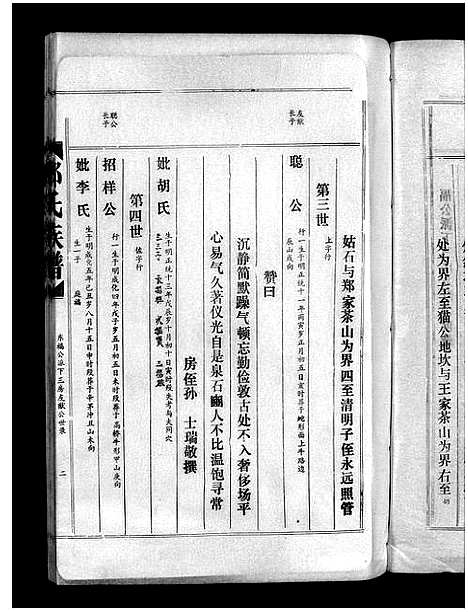 处为界左至猫公地坎与王家茶山为界右至
姑石与郑家茶山为界四至清明子侄永远照管
第三世
上字行
友献
长子
聪公
行一生于明正统十一年丙寅岁正月初五日亥时葬于蛇形面上牛路边
辰山戌向
赞曰
沉静简默躁气顿忘勤俭敦古处不入奢侈场平
心易气久著仪光自是泉石幽人不比温饱寻常
房侄孙 士瑞敬撰
妣胡氏
生于明正统十三年戊辰岁十月初十日寅时殁失考与夫同穴
生三子 长招样 次招贤 三招聪
第四世
佐字行
聪公
长子
招样公
行一生于明成化四年戊子岁五月初五日未时殁葬于高桥牛形甲山庚向
妣李氏
生于明成化五年己丑岁八月十五日申时殁葬于辛茅冲丑山未向
生一子 庭福
氏族谱
东福公派下三房友献公世录
二